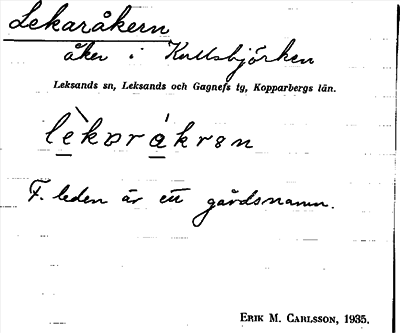 Lekaråkern
åker i Kullsbjörken
Leksands sn, Leksands och Gagnefs tg, Kopparbergs län.
lèkɒrákrən
F. leden är ett gårdsnamn.
ERIK M. CARLSSON, 1935.